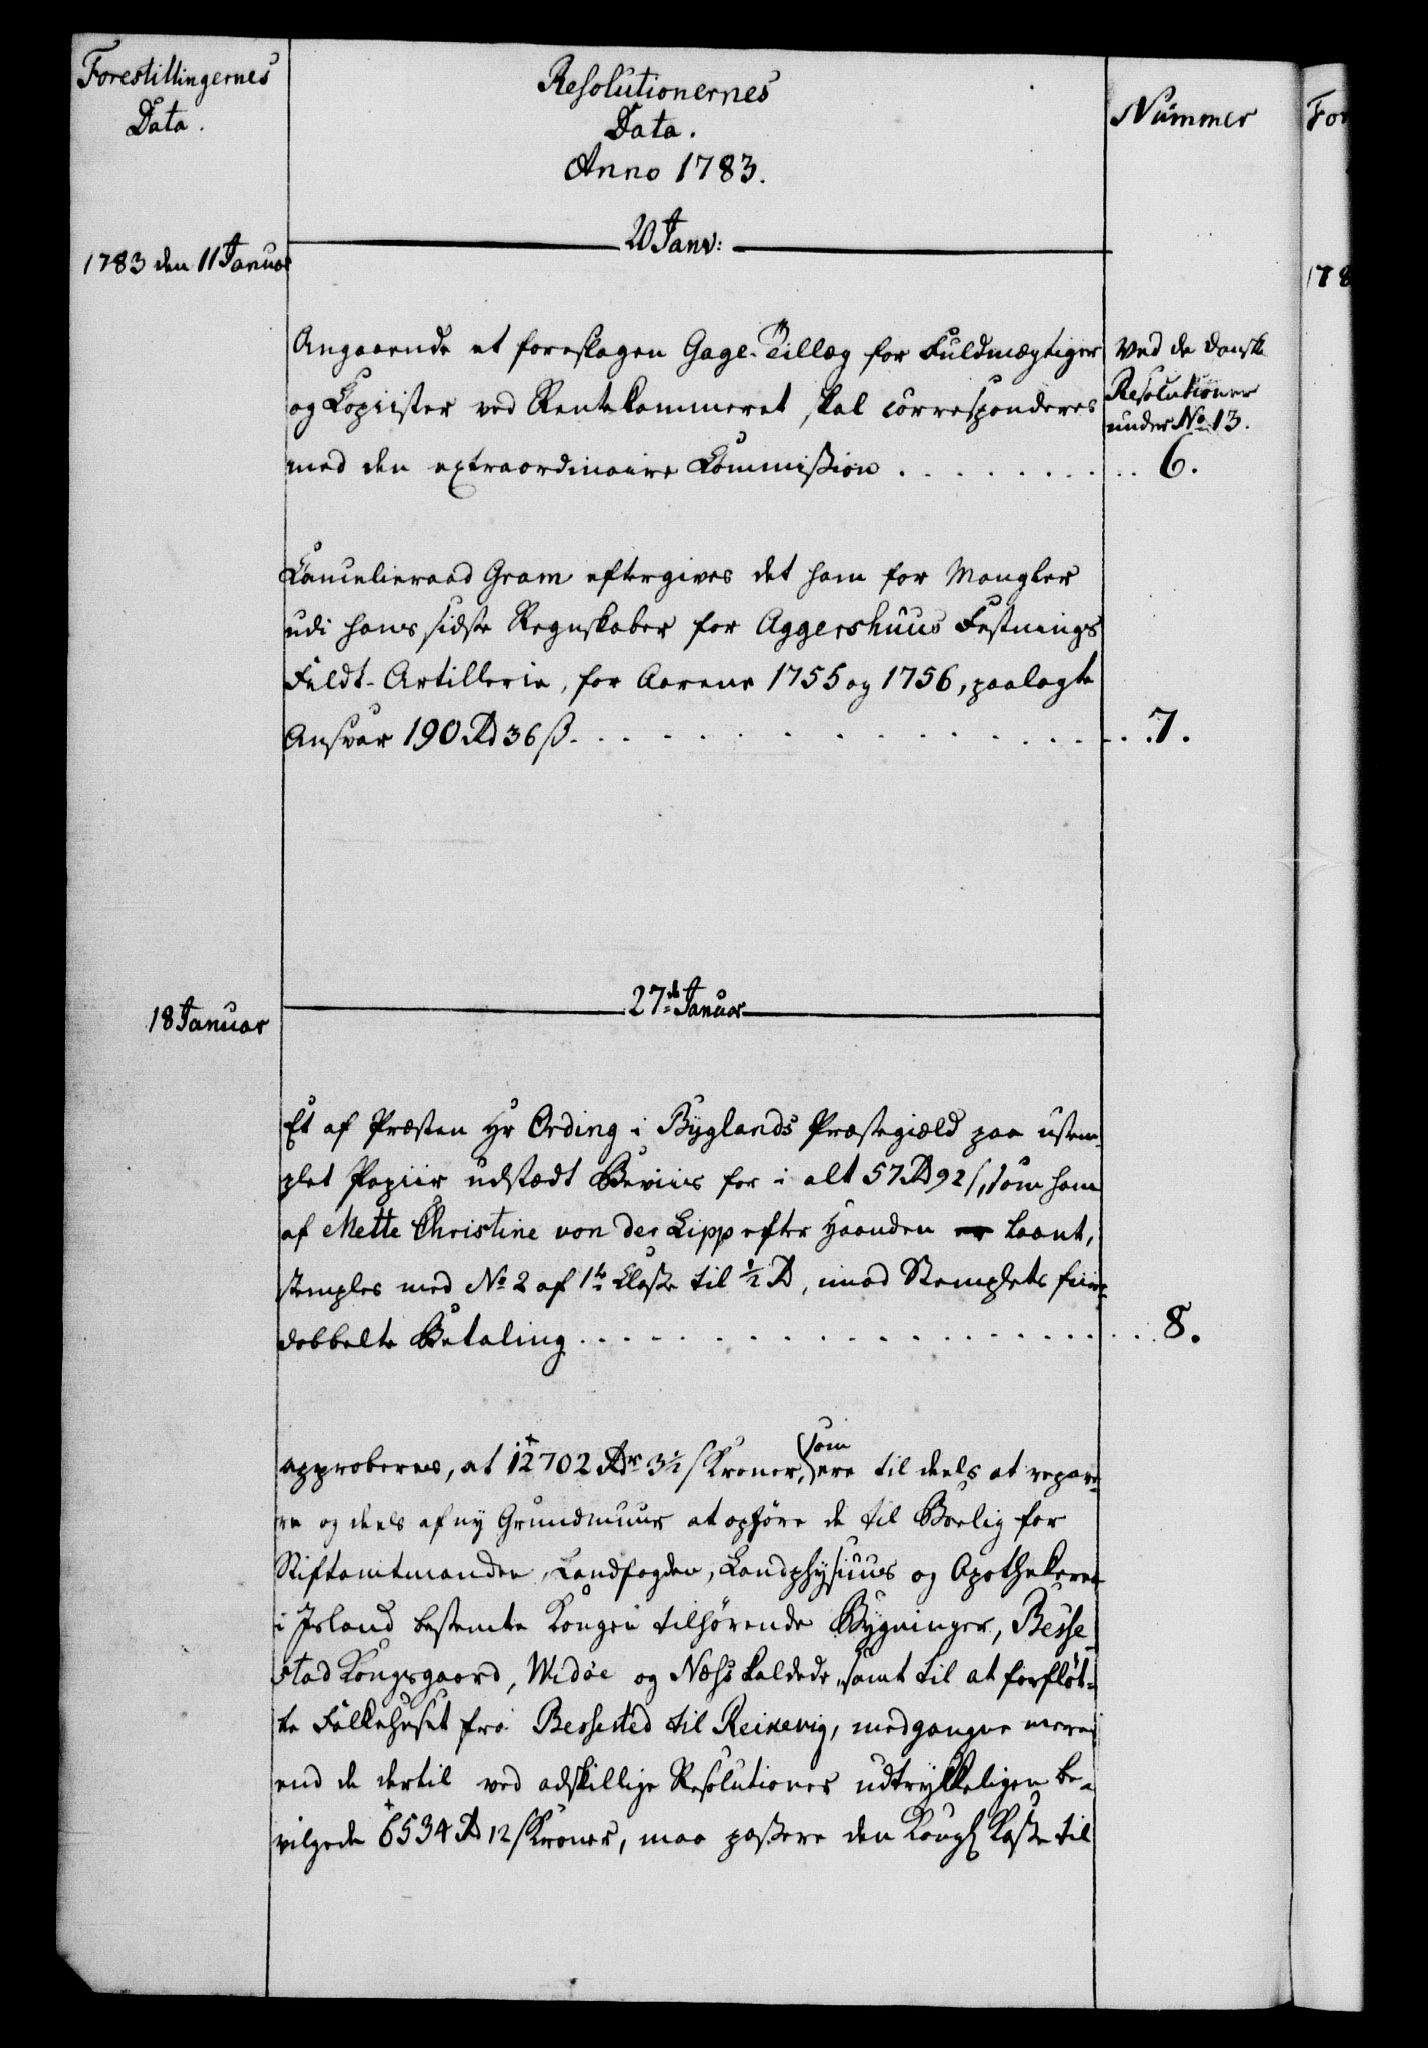 Forestillingernes
Data.
Resolutionernes
Data.
Anno 1783.
Nummer
20 Janv:
1783 den 11 Januar
Angaaende et foreslagen Gage-Tillæg for Fuldmægtiger
og Copiister ved Rentekammeret skal corresponderes
med den extraordinaire Commission . . . . . . . . .
Ved de danske
Resolutioner
under No 13.
6.
Cancelieraad Gram eftergives det ham for Mangler
udi hans sidste Regnskaber for Aggershuus Festnings
Feldt-Artillerie, for Aarene 1755 og 1756, paalagte
Ansvar 190 Rd 36 ß. . . . . . . . . . . . . . . 7.
27de Januar
18 Januar
Et af Præsten Hr Ording i Byglands Præstegiæld paa ustem-
plet Papiir udstædt Beviis for i alt 57 Rd 92 ß, som ham
af Mette Christine von der Lipp efter Haanden er laant,
stemples med No 2 af 1te Classe til ½ Rd, imod Stemplets fiir-
dobbelte Betaling . . . . . . . . . . . . . . . . . . 8.
approberes, at 12702 Rdr 3½ ß Kroner, som ere til deels at repare-
re og deels af ny Grundmuur at opföre de til Boelig for
Stiftamtmanden, Landfogden, Landphysicus og Apothekeren
i Island bestemte Kongen tilhørende Bygninger, Besse-
stad Kongsgaard, Widöe og Næss kaldede, samt til at forfløt-
te Folkehuset fra Bessested til Reikevig, medgangne mere
end de dertil ved adskillige Resolutioner udtrykkeligen be-
vilgede 6534 Rd 12 ß Kroner, maa passere den Kongl Kasse til